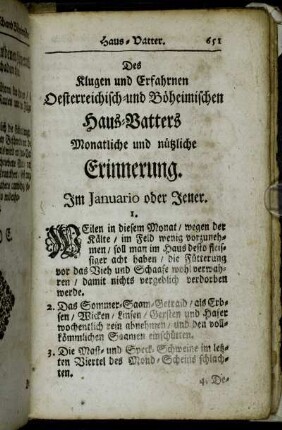 Haus-Vatter. 651
Des
Klugen und Erfahrnen
Oesterreichisch-und Böheimischen
Haus-Vatters
Monatliche und nützliche
Erinnerung.
Im Januario oder Jener.
1.
WEilen in diesem Monat / wegen der
Kälte / im Feld wenig vorzuneh-
men / soll man im Haus desto fleis-
siger acht haben / die Fütterung
vor das Vieh und Schaafe wohl verwah-
ren / damit nichts vergeblich verdorben
werde.
2. Das Sommer-Saam-Getraid / als Erb-
sen / Wicken / Linsen / Gersten und Haser
wochentlich rein abnehmen / und den voll-
kömmlichen Saamen einschütten.
3. Die Mast- und Speck-Schweine im letz-
ten Viertel des Mond-Scheins schlach-
ten.
4. De-